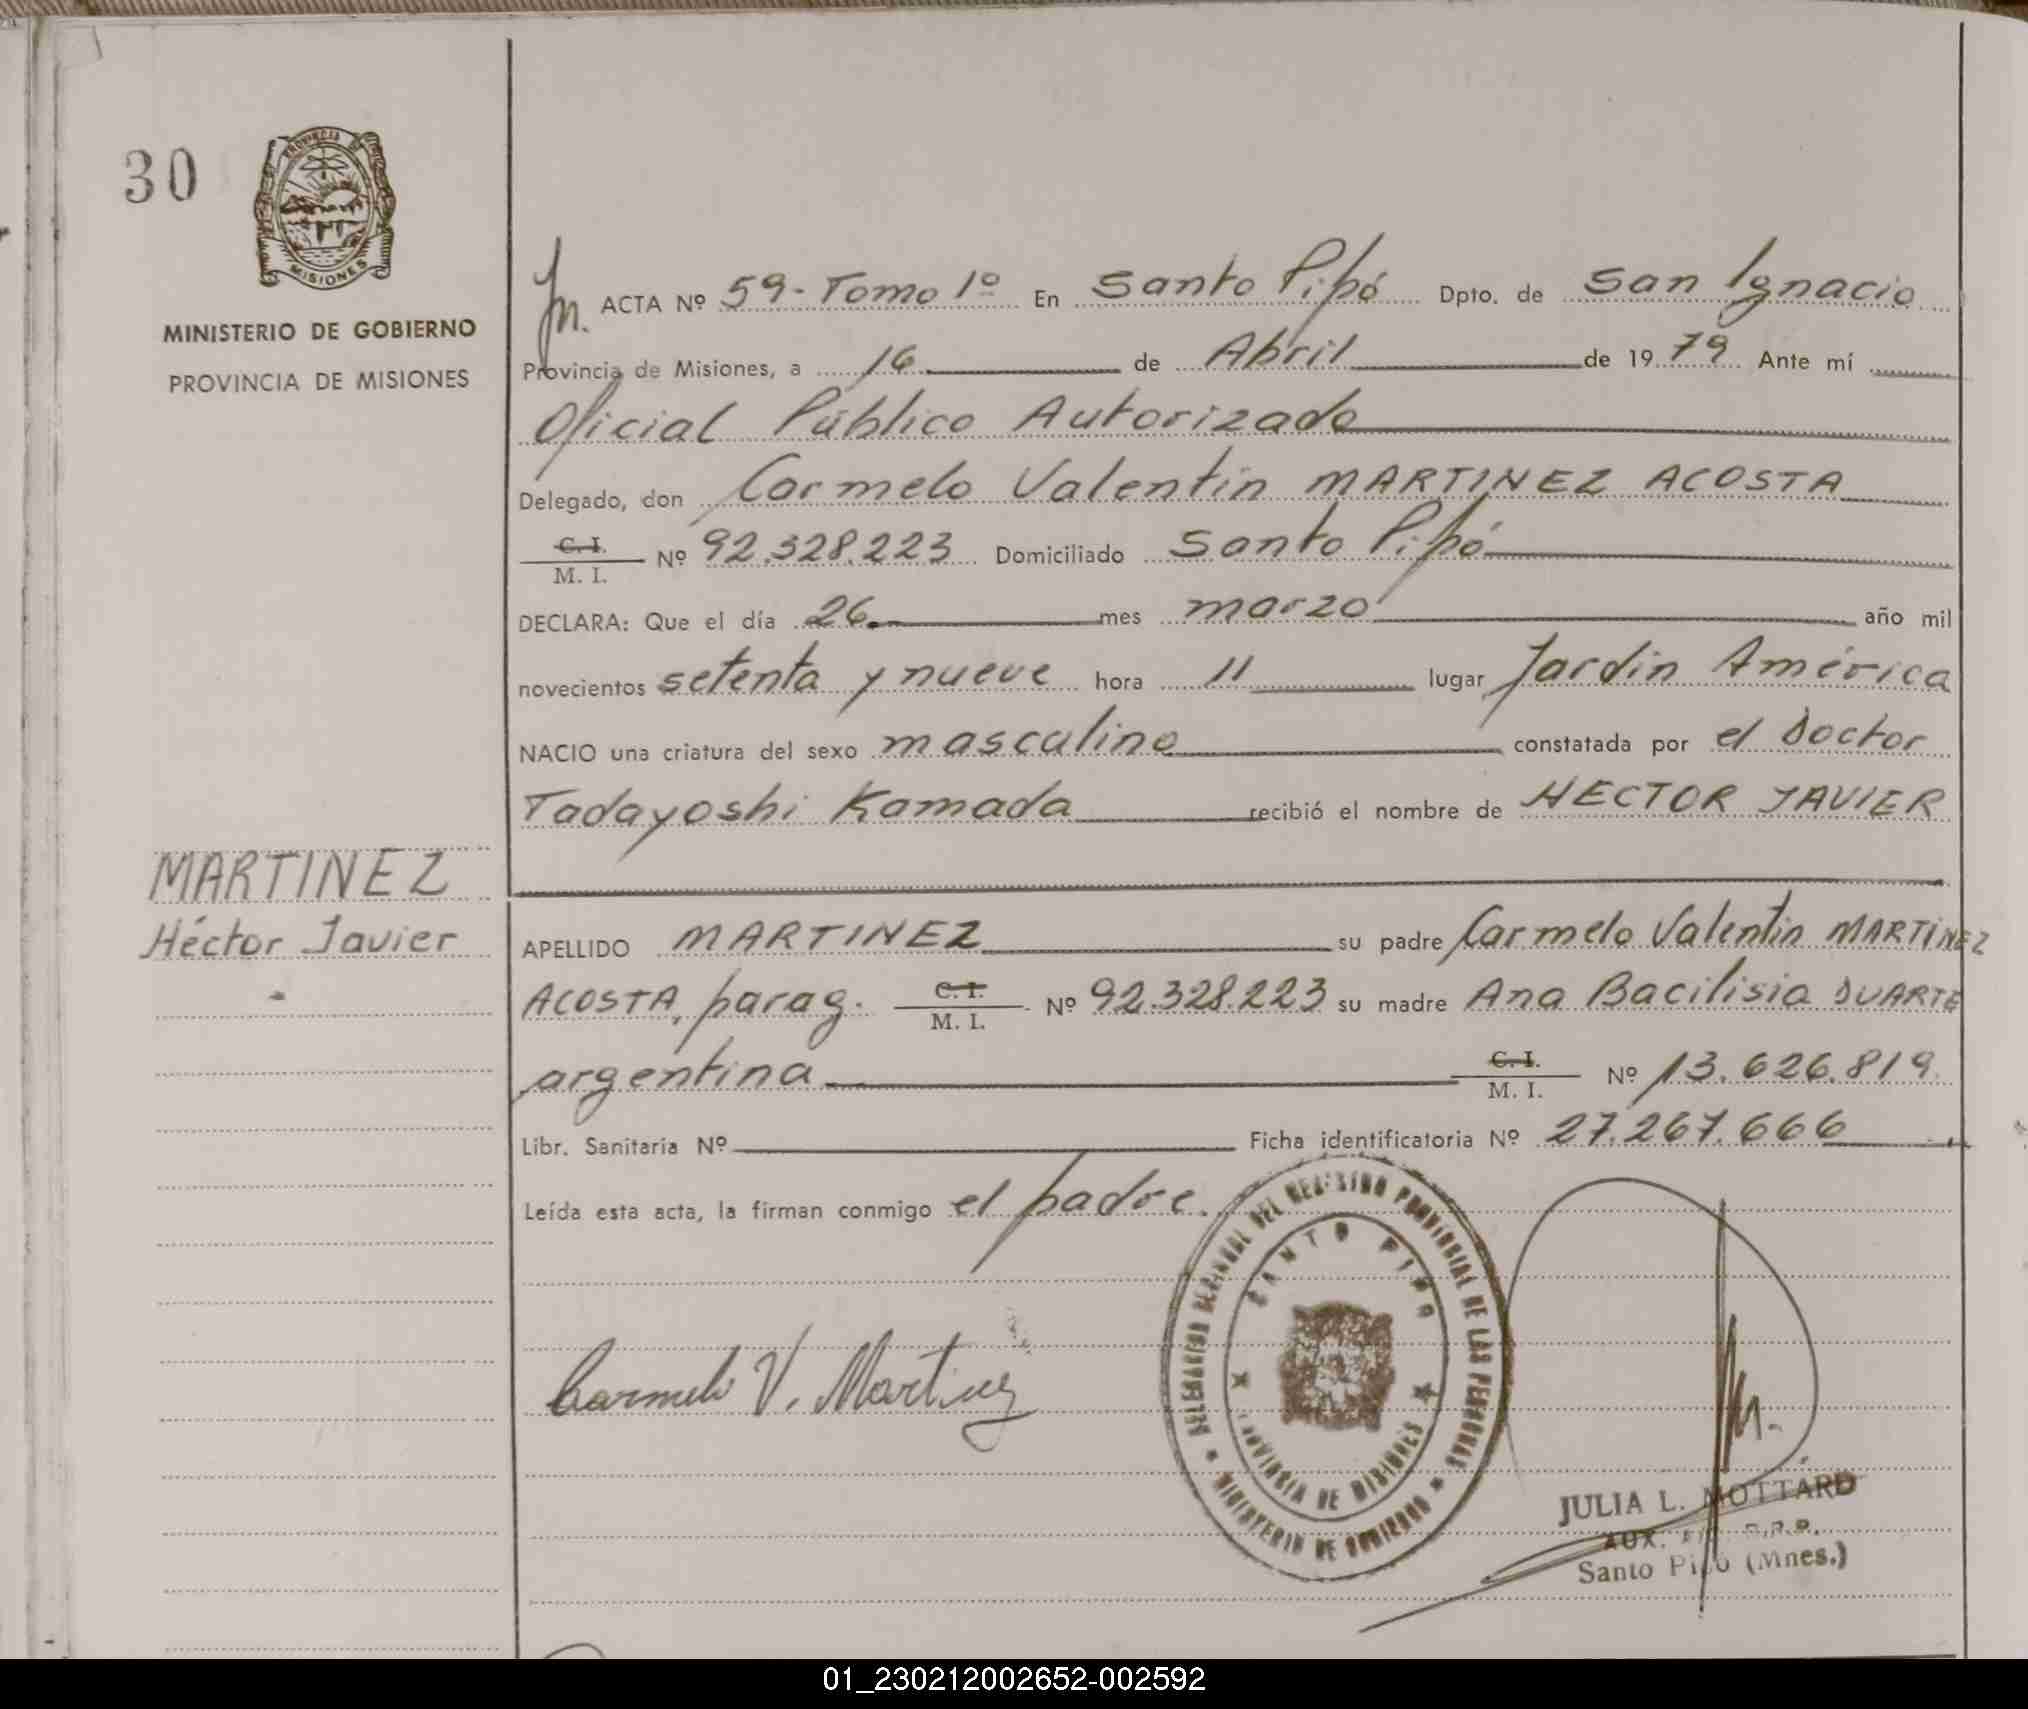 30
PROVINCIA DE
MISIONES
MINISTERIO DE GOBIERNO
PROVINCIA DE MISIONES
ACTA Nº 59 - Tomo 1º En Santo Pipó Dpto. de San Ignacio
Provincia de Misiones, a 16 de Abril de 1979 Ante mí
Oficial Público Autorizado
Delegado, don Carmelo Valentín MARTINEZ ACOSTA
C. I.
M. I. Nº 92.328.223 Domiciliado Santo Pipó
DECLARA: Que el día 26 mes marzo año mil
novecientos setenta y nueve hora 11 lugar Jardín América
NACIO una criatura del sexo masculino constatada por el Doctor
Tadayoshi Kamada recibió el nombre de HECTOR JAVIER
MARTINEZ
Héctor Javier
APELLIDO MARTINEZ su padre Carmelo Valentín MARTINEZ
ACOSTA, parag. C. I. M. I. Nº 92.328.223 su madre Ana Bacilisia DUARTE
argentina C. I. M. I. Nº 13.626.819
Libr. Sanitaria Nº Ficha identificatoria Nº 27.267.666
Leída esta acta, la firman conmigo el padre.
DEL REGISTRO PROVINCIAL DE LAS PERSONAS
SANTO PIPO
PROVINCIA DE MISIONES
MINISTERIO DE GOBIERNO
Carmelo V. Martinez
JULIA L. MOTTARD
AUX.
Santo Pipó (Mnes.)
01_230212002652-002592